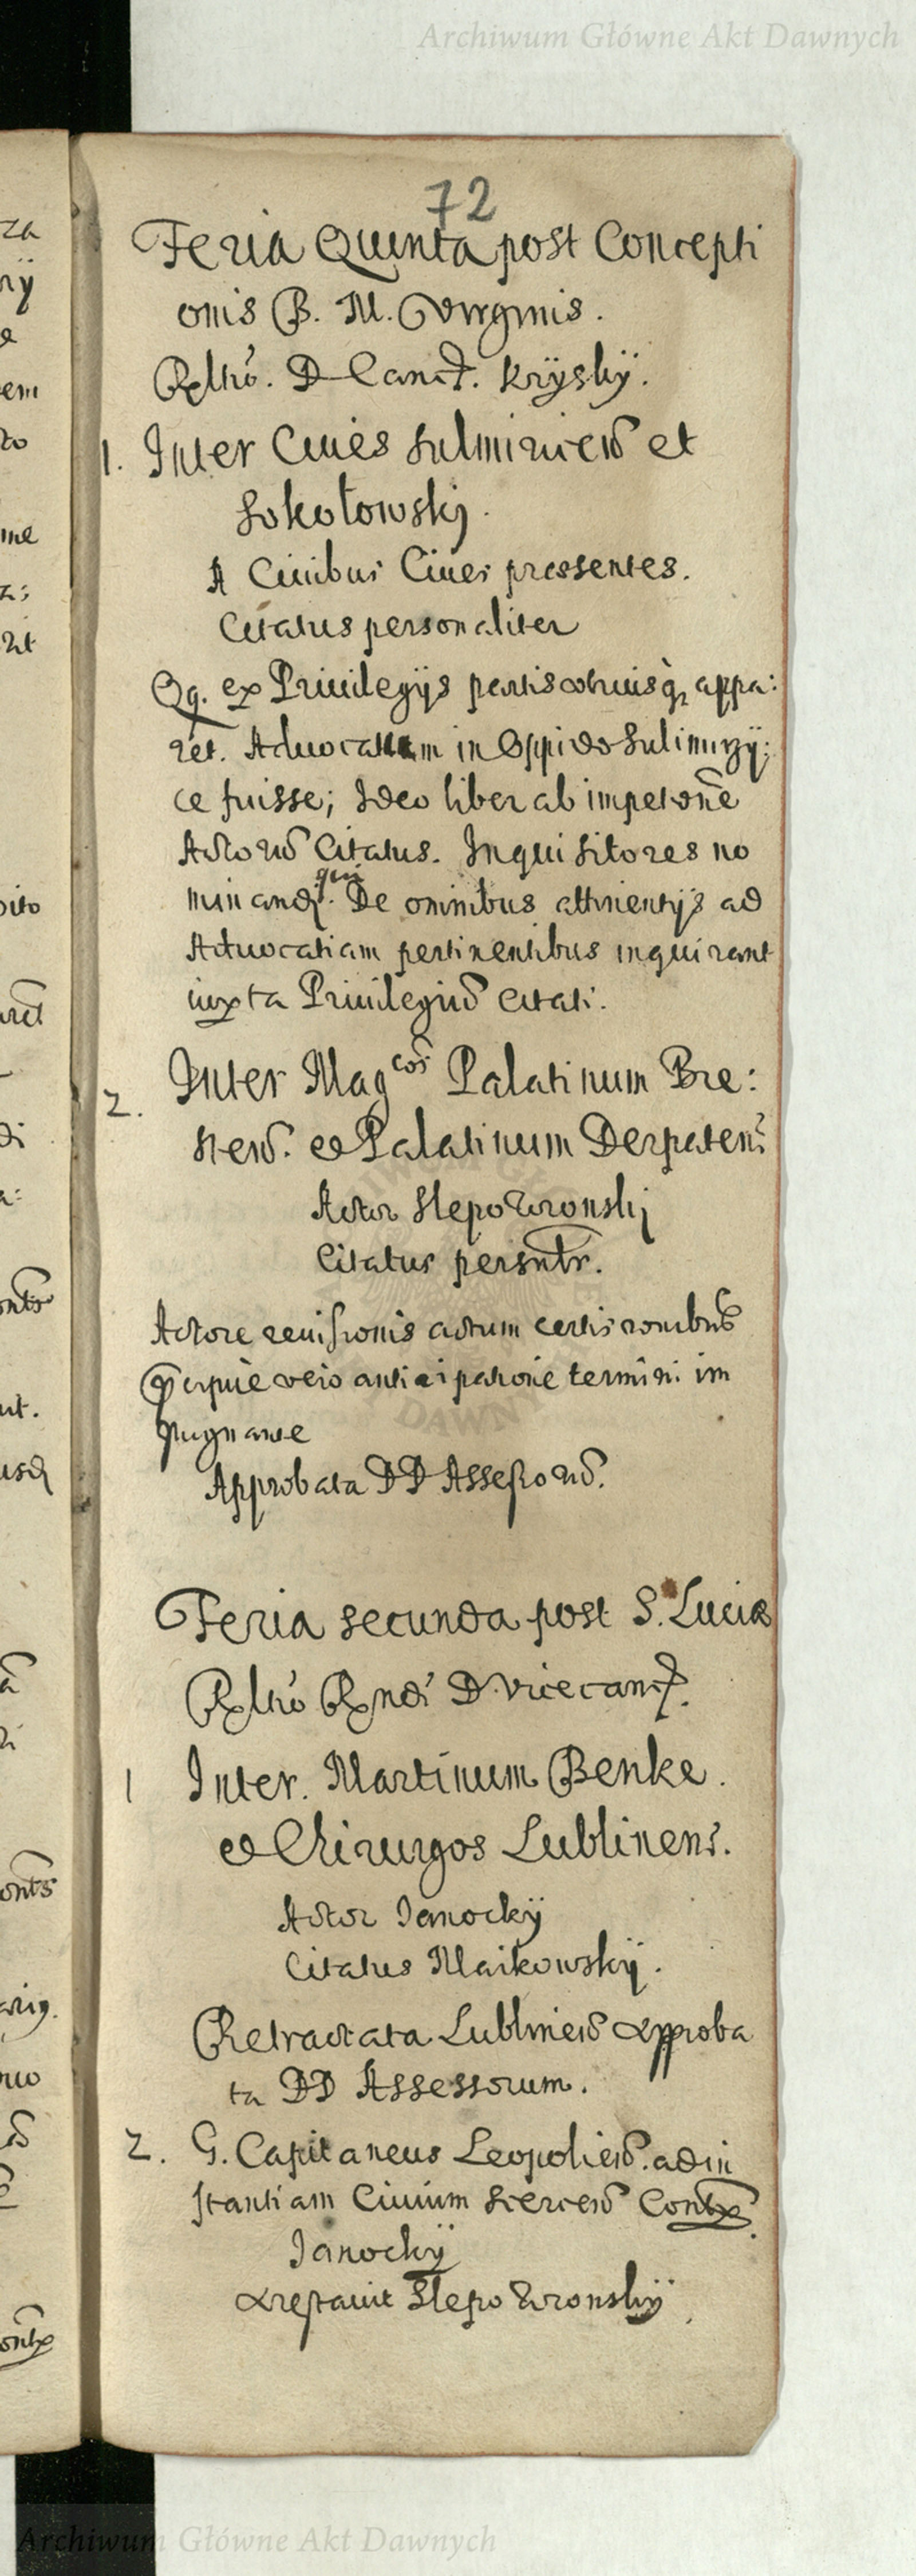 Archiwum Główne Akt Dawnych
72
Feria Quinta post Concepti
onis B. M. Virginis.
D Canc. Kryskÿ.
1. Inter Ciues Sulmiricen et
Sokołowskj.
A Ciuibus Ciues pressentes.
Citatus personaliter
Qq. ex Priuilegijs partis utriusq appa:
ret. Aduocatiam in Oppido Sulimirzÿ:
ce fuisse; Ideo liber ab impetone
Actoru Citatus. Inquisitores no
minandi qui De omnibus attinentijs ad
Aduocatiam pertinentibus inquirant
iuxta Priuilegiu Citati.
2. Inter Magcos Palatinum Bre:
sten. et Palatinum Derpatens
Actor Slepowronskj
Citatus persntr.
Actore reuisionis actum certis ronibus
vero anticipatione termini im
pugnare
Approbata DD Assessoru.
Feria secunda post S. Luciæ
Rltio Rndi D. Vicecanc.
1 Inter. Martinum Benke.
et Chirurgos Lublinens.
Actor Janockÿ
Citatus Maikowskij.
Retractata Lublinen approba
ta DD Assessorum.
2. G. Capitaneus Leopolien. ad in
stantiam Ciuium Contra
Janockÿ
Slepowronskÿ
Archiwum Główne Akt Dawnych